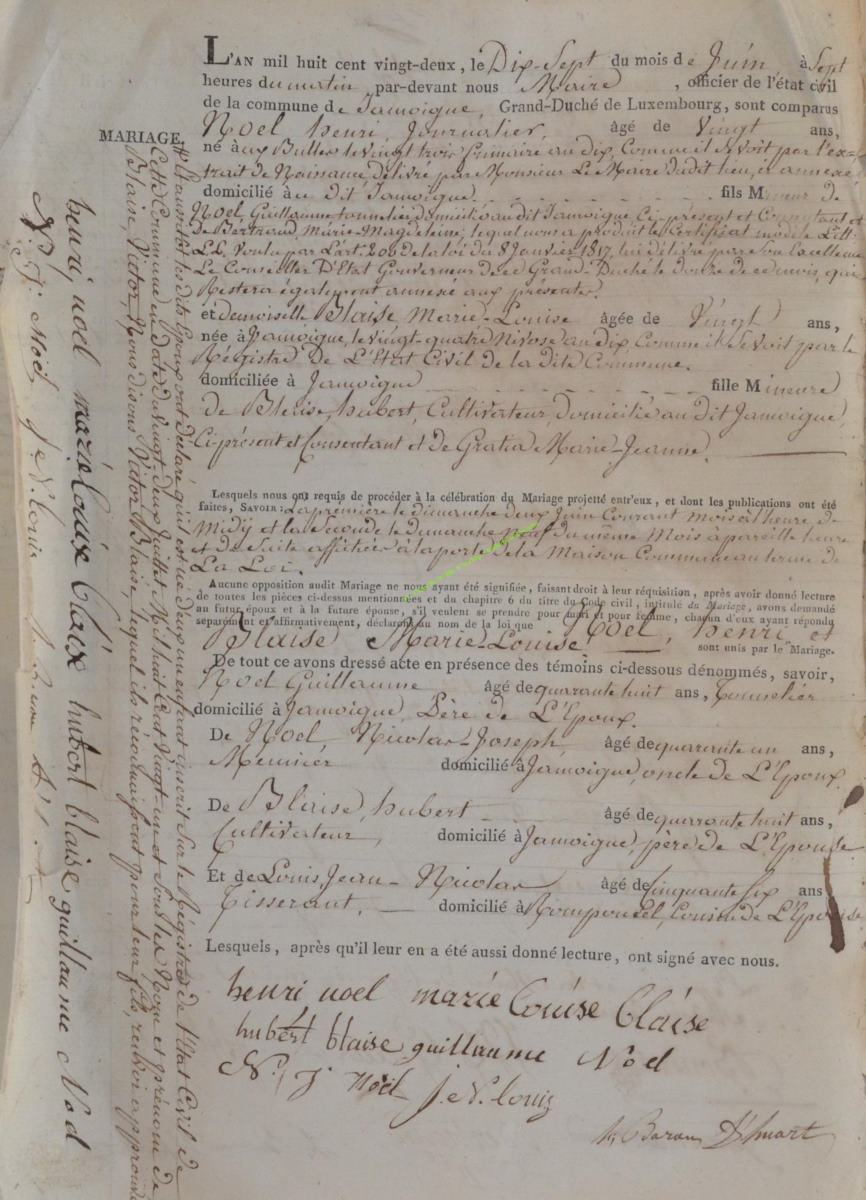 L'AN mil huit cent vingt-deux, le Dix-Sept du mois de Juin à Sept
heures du matin par-devant nous Maire, officier de l'état civil
de la commune de Jamoigue, Grand-Duché de Luxembourg, sont comparus
MARIAGE.
Noel henri Journalier, âgé de Vingt ans,
né aux Bulles le vingt trois frimaire an dix, Comme il se voit par l'ex=
trait de Naissance délivré par Monsieur Le Maire dudit lieu, ci annexé
domicilié à ce Dit Jamoigue fils Mineur de
Noël, Guillaume tonnelier domicilié au dit Jamoigue, Ci-présent et Consentant et
de Bertrand, Marie-Magdeleine, lequel nous a produit le Certificat modèle Litt.
LL. Voulu par L'art. 200 de la loi du 8 Janvier 1817, lui délivré par Son Excellence
Le Conseiller D'Etat Gouverneur de ce Grand-Duché le douze de ce mois, qui
Restera également annexé aux présentes.
et demoiselle Blaise Marie-Louise âgée de Vingt ans,
née à Jamoigue, le vingt-quatre Nivose an dix Comme il se voit par le
Régistre De L'Etat Civil de la dite Commune.
domiciliée à Jamoigue fille Mineure
de Blaise, hubert, Cultivateur, domicilié au dit Jamoigue,
Ci-présent et Consentant et de Gratia Marie-Jeanne.
Lesquels nous ont requis de procéder à la célébration du Mariage projetté entr'eux, et dont les publications ont été
faites, SAVOIR: La première le dimanche deux Juin Courant mois à l'heure de
Midy et la Seconde le dimanche neuf du même Mois à pareille heure
et de Suite affichées à la porte de la Maison Commune au terme de
La Loi.
Aucune opposition audit Mariage ne nous ayant été signifiée, faisant droit à leur réquisition, après avoir donné lecture
de toutes les pièces ci-dessus mentionnées et du chapitre 6 du titre du Code civil, intitulé du Mariage, avons demandé
au futur époux et à la future épouse, s'il veulent se prendre pour mari et pour femme, chacun d'eux ayant répondu
séparément et affirmativement, déclarons au nom de la loi que Noël, henri et
Blaise Marie-Louise sont unis par le Mariage.
De tout ce avons dressé acte en présence des témoins ci-dessous dénommés, savoir,
Noel Guillaume âgé de quarante huit ans, Tonnelier
domicilié à Jamoigue, Père de L'Epoux.
De Noel Nicolas-Joseph, âgé de quarante un ans,
Meunier domicilié à Jamoigue, oncle de L'Epoux.
De Blaise, hubert âgé de quarante huit ans,
Cultivateur, domicilié à Jamoigue, père de L'Epouse
Et de Louis, Jean-Nicolas âgé de Cinquante Six ans
Tisserant, domicilié à Romponcel, Cousin de L'Epouse
Lesquels, après qu'il leur en a été aussi donné lecture, ont signé avec nous.
henri noel marie Louise blaise
hubert blaise guillaume Noel
N. J. Noël J. N. Louis
Baron D'huart
les dits Epoux ont déclaré qu'il est né d'eux un enfant inscrit Sur le Régistre de l'Etat Civil de
Cette Commune en Date du Vingt deux Juillet Mil huit Cent Vingt-un et Sous les Nom et prénom de
Blaise, Victor, Nous disons Victor Blaise, lequel ils reconnaissent pour leur fils,
henri noel marie Louise blaise hubert blaise guillaume Noel
N. J. Noël J. N. Louis